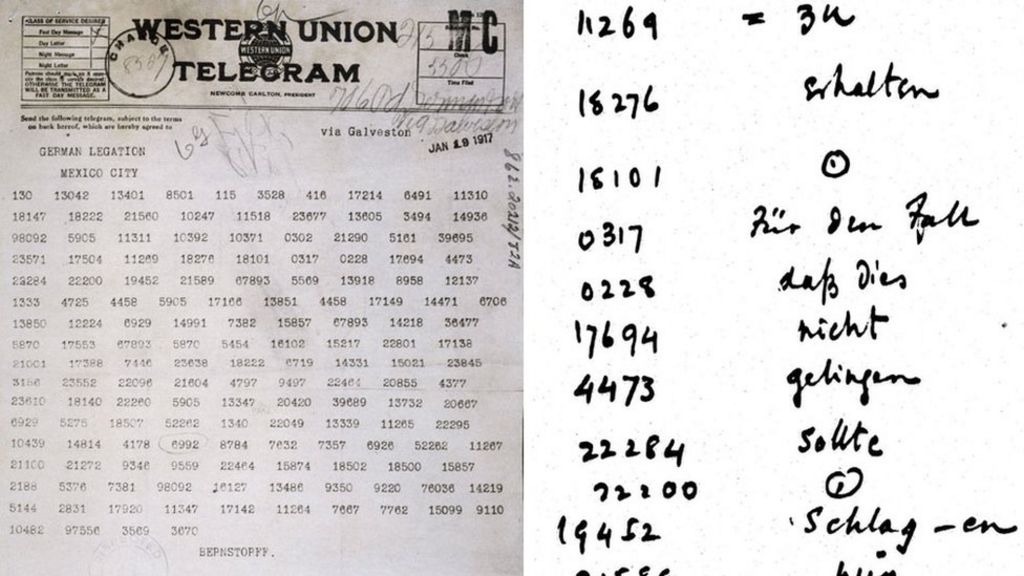 CLASS OF SERVICE DESIRED
Fast Day Message
Day Letter
Night Message
Night Letter
Patrons should mark an X oppo-
site the class of service desired;
OTHERWISE THE TELEGRAM
WILL BE TRANSMITTED AS A
FAST DAY MESSAGE.
WESTERN UNION
WESTERN UNION
TELEGRAM
NEWCOMB CARLTON, PRESIDENT
CHARGE
Time Filed
Send the following telegram, subject to the terms
on back hereof, which are hereby agreed to
via Galveston
JAN 19 1917
GERMAN LEGATION
MEXICO CITY
130 13042 13401 8501 115 3528 416 17214 6491 11310
18147 18222 21560 10247 11518 23677 13605 3494 14936
98092 5905 11311 10392 10371 0302 21290 5161 39695
23571 17504 11269 18276 18101 0317 0228 17694 4473
22284 22200 19452 21589 67893 5569 13918 8958 12137
1333 4725 4458 5905 17166 13851 4458 17149 14471 6706
13850 12224 6929 14991 7382 15857 67893 14218 36477
5870 17553 67893 5870 5454 16102 15217 22801 17138
21001 17388 7446 23638 18222 6719 14331 15021 23845
3156 23552 22096 21604 4797 9497 22464 20855 4377
23610 18140 22260 5905 13347 20420 39689 13732 20667
6929 5275 18507 52262 1340 22049 13339 11265 22295
10439 14814 4178 6992 8784 7632 7357 6926 52262 11267
21100 21272 9346 9559 22464 15874 18502 18500 15857
2188 5376 7381 98092 16127 13486 9350 9220 76036 14219
5144 2831 17920 11347 17142 11264 7667 7762 15099 9110
10482 97556 3569 3670
BERNSTORFF.
11269 = zu
18276 erhalten
18101 ⊙
0317 Für den Fall
0228 daß dies
17694 nicht
4473 gelingen
22284 sollte
22200
19452 Schlag-en